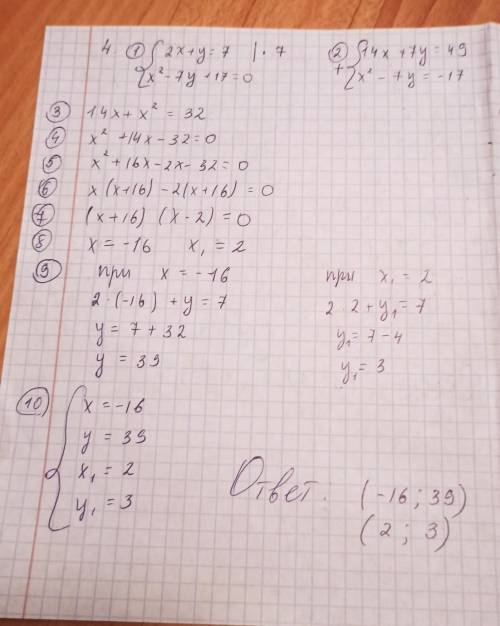 4. ① { 2x+y=7 | · 7
x²-7y+17=0
② + { 14x+7y=49
x²-7y=-17
③ 14x+x²=32
④ x²+14x-32=0
⑤ x²+16x-2x-32=0
⑥ x(x+16)-2(x+16)=0
⑦ (x+16)(x-2)=0
⑧ x=-16 x₁=2
⑨ при x=-16
2·(-16)+y=7
y=7+32
y=39
при x₁=2
2·2+y₁=7
y₁=7-4
y₁=3
⑩ { x=-16
y=39
x₁=2
y₁=3
Ответ. (-16; 39)
(2; 3)